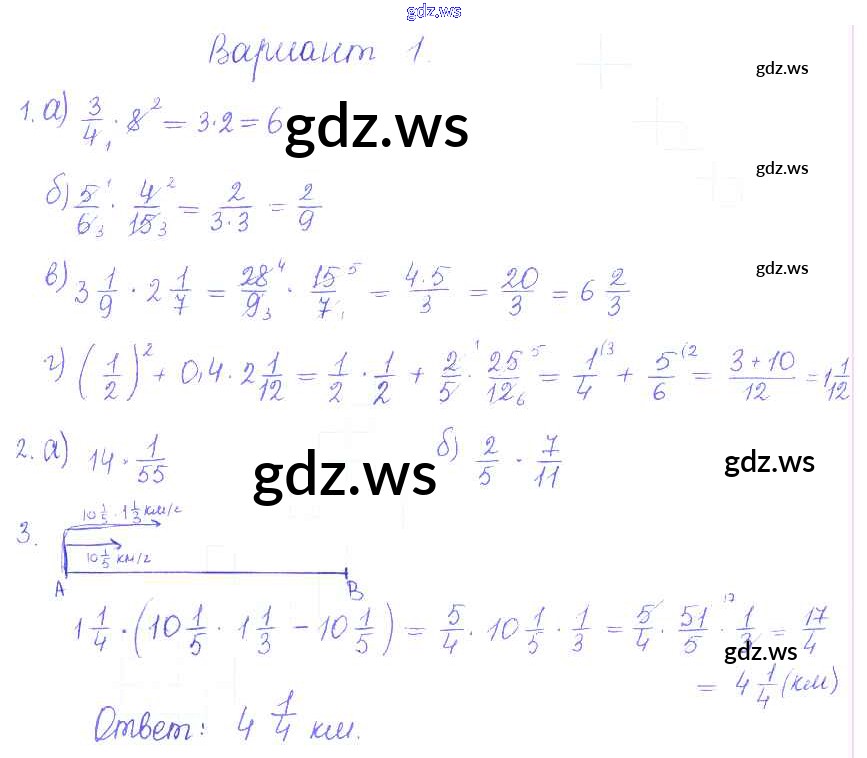 gdz.ws
Вариант 1.
gdz.ws
1. а) 3/4 · 8 2 = 3·2 = 6
gdz.ws
gdz.ws
б) 5/6 · 4/15 = 2/(3·3) = 2/9
в) 3 1/9 · 2 1/7 = 28/9 · 15/7 = (4·5)/3 = 20/3 = 6 2/3
gdz.ws
г) (1/2)² + 0,4 · 2 1/12 = 1/2 · 1/2 + 2/5 · 25/12 = 1/4 + 5/6 = (3+10)/12 = 1 1/12
2. а) 14 · 1/55 б) 2/5 · 7/11
gdz.ws
gdz.ws
3. 10 1/5 · 1 1/3 км/г
10 1/5 км/г
А В
1 1/4 · (10 1/5 · 1 1/3 − 10 1/5) = 5/4 · 10 1/5 · 1/3 = 5/4 · 51/5 · 1/3 = 17/4
gdz.ws
= 4 1/4 (км)
Ответ: 4 1/4 км.